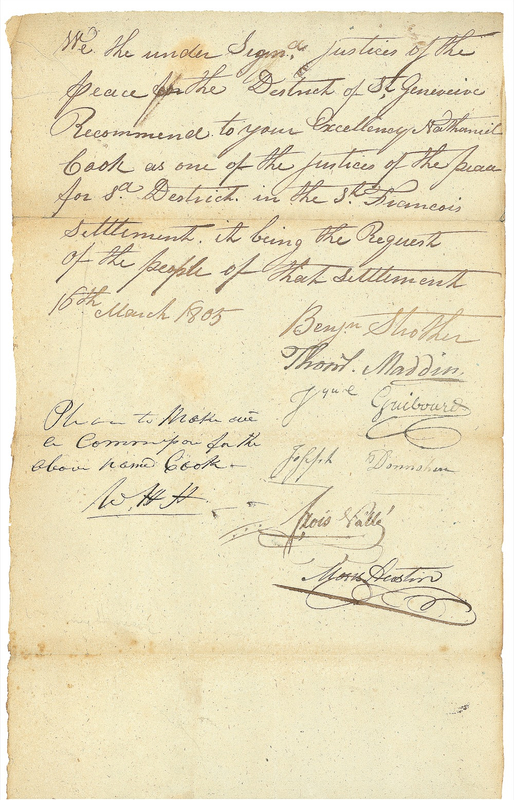 We the under Signd. justices of the
peace for the Destrict of St. Geneveive
Recommend to your Excellency Nathaniel
Cook as one of the justices of the peace
for Sd. Destrict. in the St. Francois
settlement. it being the Request
of the people of that settlement
16th March 1805
Benjn Strother
Thos. Maddin
Jque Guibourd
Please to Make out
a Commission for the
above named Cook
Joseph Donnohue
W H H
frois Vallé
Moses Austin